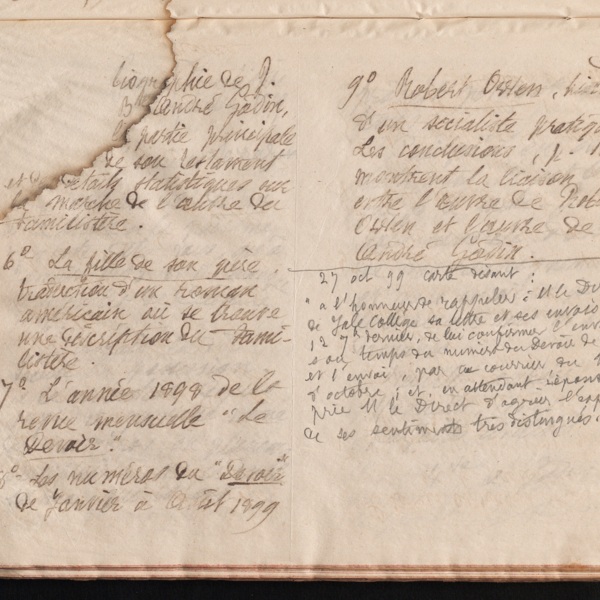 biographie de J.
Bte André Godin,
la partie principale
de son testament
et détails statistiques sur
la marche de l'œuvre du
Familistère.
6° La fille de son père.
traduction d'un roman
américain où se trouve
une description du Fami-
listère.
7° L'année 1898 de la
revue mensuelle "Le
Devoir."
8° Les numéros du "Devoir"
de Janvier à Août 1899
9° Robert Owen,
d'un socialiste pratiq
Les conclusions, p.
montrent la liaison
entre l'œuvre de Rob
Owen et l'œuvre de
André Godin.
27 oct 99 carte disant :
"a l'honneur de rappeler à M le Di
de Yale College sa lettre et ses envois
12 7bre dernier, de lui confirmer l'env
en temps du numéro du Devoir de
et l'envoi, par ce courrier du
d'octobre ; et en attendant réponse
prie M le Direct d'agréer l'exp
de ses sentiments très distingués.